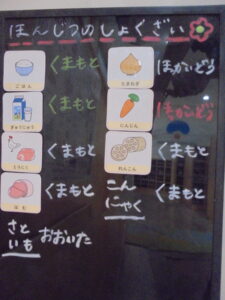 ほんじつのしょくざい
ごはん くまもと
たまねぎ ほっかいどう
ぎゅうにゅう くまもと
にんじん ほっかいどう
とりにく くまもと
れんこん くまもと
ハム くまもと
こんにゃく くまもと
さといも おおいた